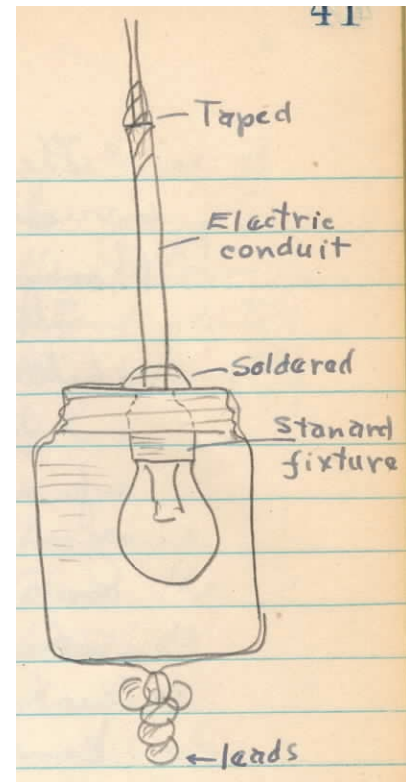 41
Taped
Electric
conduit
Soldered
Stanard
fixture
leads